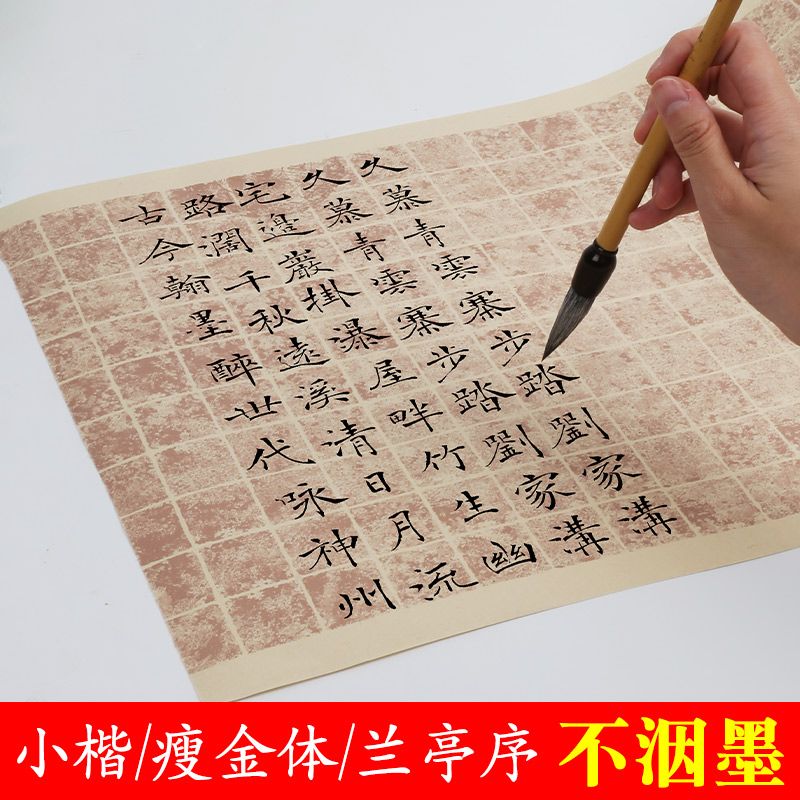 久慕青雲寨步踏劉家溝
久慕青雲寨步踏劉家溝
宅邊巖掛瀑屋畔竹生幽
路濶千秋遠溪清日月流
古今翰墨醉世代咏神州
小楷/瘦金体/兰亭序 不洇墨